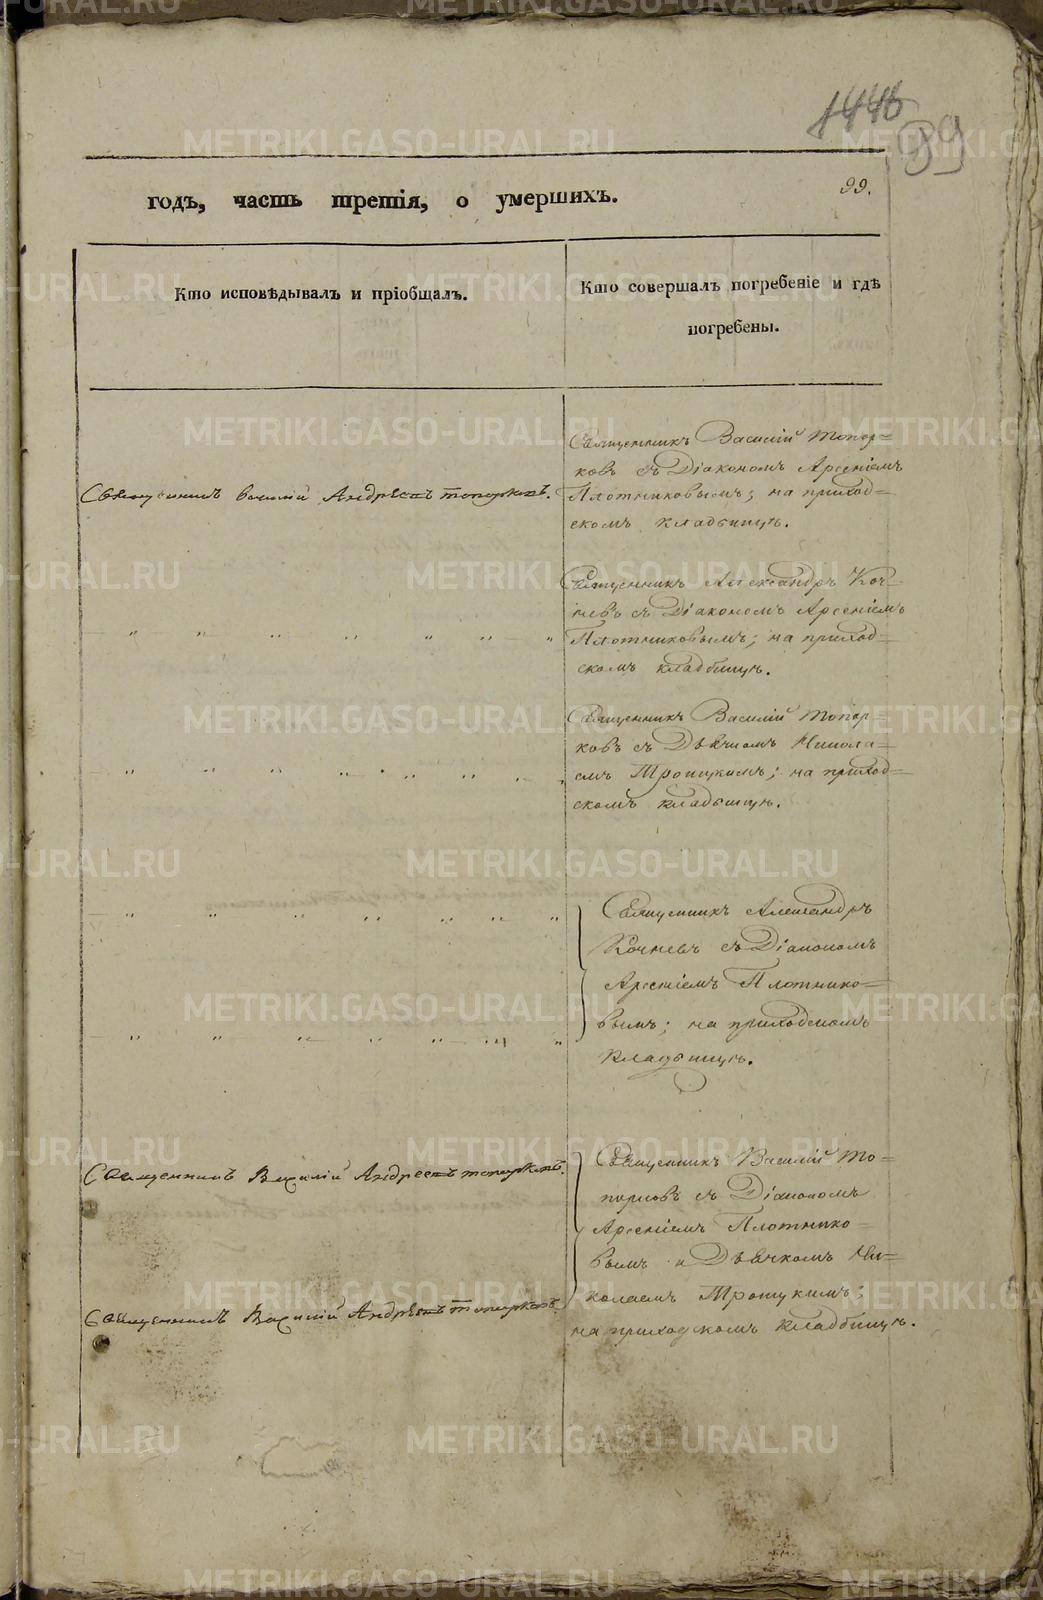 99
99.
годъ, часть третія, о умершихъ.
Кто исповѣдывалъ и пріобщалъ.
Кто совершалъ погребеніе и гдѣ
погребены.
Священникъ Василій Андреевъ Топорковъ.
Священникъ Василій Топор=
ковъ съ Діакономъ Арсеніемъ
Плотниковымъ; на приход=
скомъ кладбищѣ.
Священникъ Александръ Коч=
невъ съ Діакономъ Арсеніемъ
Плотниковымъ; на приход=
скомъ кладбищѣ.
Священникъ Василій Топор=
ковъ съ Дьячкомъ Никола=
емъ Троицкимъ; на приход=
скомъ кладбищѣ.
Священникъ Александръ
Кочневъ съ Діакономъ
Арсеніемъ Плотнико=
вымъ; на приходскомъ
кладбищѣ.
Священникъ Василій Андреевъ Топорковъ.
Священникъ Василій То=
порковъ съ Діакономъ
Арсеніемъ Плотнико=
вымъ и Дьячкомъ Ни=
колаемъ Троицкимъ;
на приходскомъ кладбищѣ.
Священникъ Василій Андреевъ Топорковъ.
METRIKI.GASO-URAL.RU